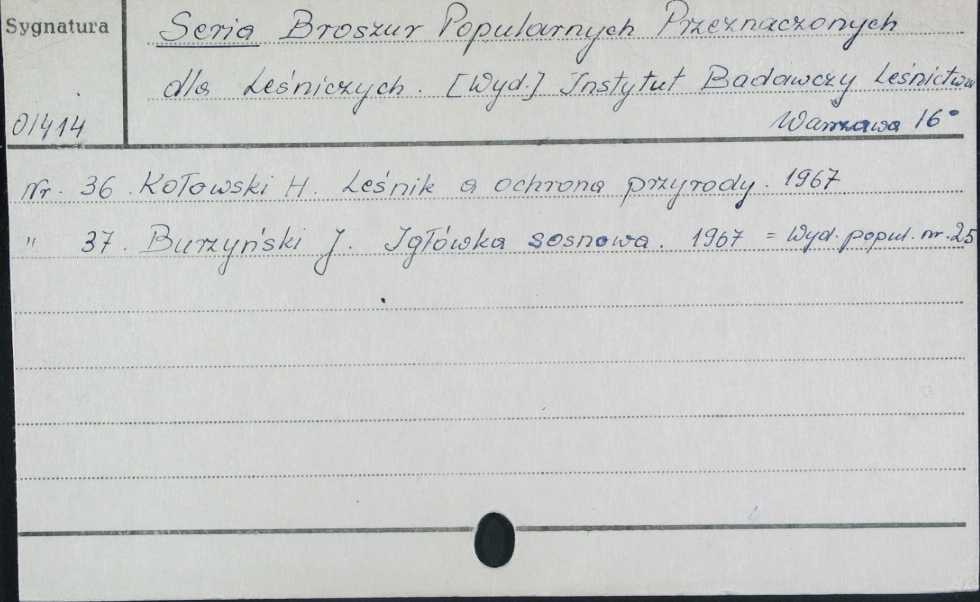 Sygnatura
Seria Broszur Popularnych Przeznaczonych
dla Leśniczych. [Wyd.] Instytut Badawczy Leśnictwa
01414
Warszawa 16°
Nr. 36. Kołowski H. Leśnik a ochrona przyrody. 1967
" 37. Burzyński J. Igłówka sosnowa. 1967 = Wyd. popul. nr. 25